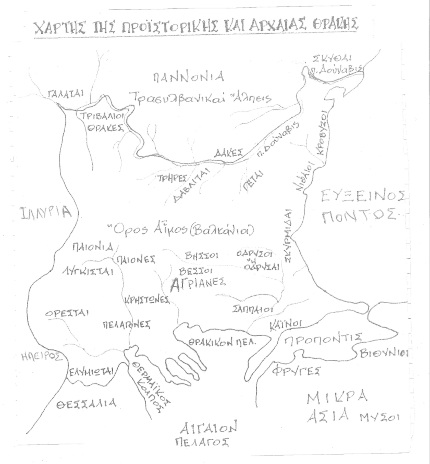 ΧΑΡΤΗΣ ΤΗΣ ΠΡΟΪΣΤΟΡΙΚΗΣ ΚΑΙ ΑΡΧΑΙΑΣ ΘΡΑΚΗΣ
ΣΚΥΘΑΙ
π. Δούναβις
ΠΑΝΝΟΝΙΑ
Τρασυλβανικαί Άλπεις
ΓΑΛΑΤΑΙ
ΤΡΙΒΑΛΛΟΙ
ΘΡΑΚΕΣ
ΚΡΟΒΥΣΟΙ
π. Δούναβις
ΔΑΚΕΣ
ΤΡΗΡΕΣ
ΓΕΤΑΙ
ΙΛΛΥΡΙΑ
ΕΥΞΕΙΝΟΣ
ΠΟΝΤΟΣ
Όρος Αίμος (Βαλκάνια)
ΣΚΥΡΜΙΔΑΙ
ΠΑΙΟΝΙΑ
ΠΑΙΟΝΕΣ
ΒΗΣΣΟΙ
ΟΔΡΥΣΟΙ
ή
ΟΔΡΥΣΑΙ
ΛΥΓΚΙΣΤΑΙ
ΒΕΣΣΟΙ
ΑΓΡΙΑΝΕΣ
ΚΡΗΣΤΩΝΕΣ
ΟΡΕΣΤΑΙ
ΣΑΠΠΑΙΟΙ
ΠΕΛΑΓΟΝΕΣ
ΚΑΙΝΟΙ
ΘΡΑΚΙΚΟΝ ΠΕΛ.
ΠΡΟΠΟΝΤΙΣ
ΗΠΕΙΡΟΣ
ΒΙΘΥΝΙΟΙ
ΕΛΥΜΙΣΤΑΙ
ΘΕΡΜΑΪΚΟΣ
ΚΟΛΠΟΣ
ΦΡΥΓΕΣ
ΘΕΣΣΑΛΙΑ
ΜΙΚΡΑ
ΑΣΙΑ
ΜΥΣΟΙ
ΑΙΓΑΙΟΝ
ΠΕΛΑΓΟΣ